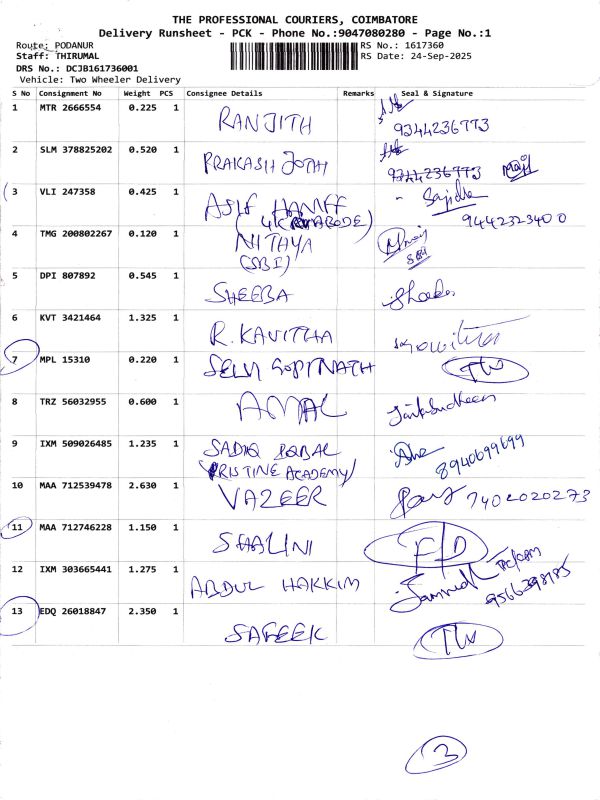 THE PROFESSIONAL COURIERS, COIMBATORE
Delivery Runsheet - PCK - Phone No.:9047080280 - Page No.:1
Route: PODANUR RS No.: 1617360
Staff: THIRUMAL RS Date: 24-Sep-2025
DRS No.: DCJB161736001
Vehicle: Two Wheeler Delivery
S No Consignment No Weight PCS Consignee Details Remarks Seal & Signature
1 MTR 2666554 0.225 1 RANJITH 9344236773
2 SLM 378825202 0.520 1 PRAKASH JOTH 9344236773
3 VLI 247358 0.425 1 ASIF HANIFF Sajidha
9442323400
4 TMG 200802267 0.120 1 NITHYA
(SBI)
5 DPI 807892 0.545 1 SHEEBA
6 KVT 3421464 1.325 1 R. KAVITHA
7 MPL 15310 0.220 1 SELVI GOPINATH
8 TRZ 56032955 0.600 1 AMAL
9 IXM 509026485 1.235 1 SADIQ IQBAL 8940699699
(PRISTINE ACADEMY)
10 MAA 712539478 2.630 1 VAZEER 7402020273
11 MAA 712746228 1.150 1 SHALINI F/D
12 IXM 303665441 1.275 1 ABDUL HAKKIM 9566398185
13 EDQ 26018847 2.350 1 SAFEEK
3